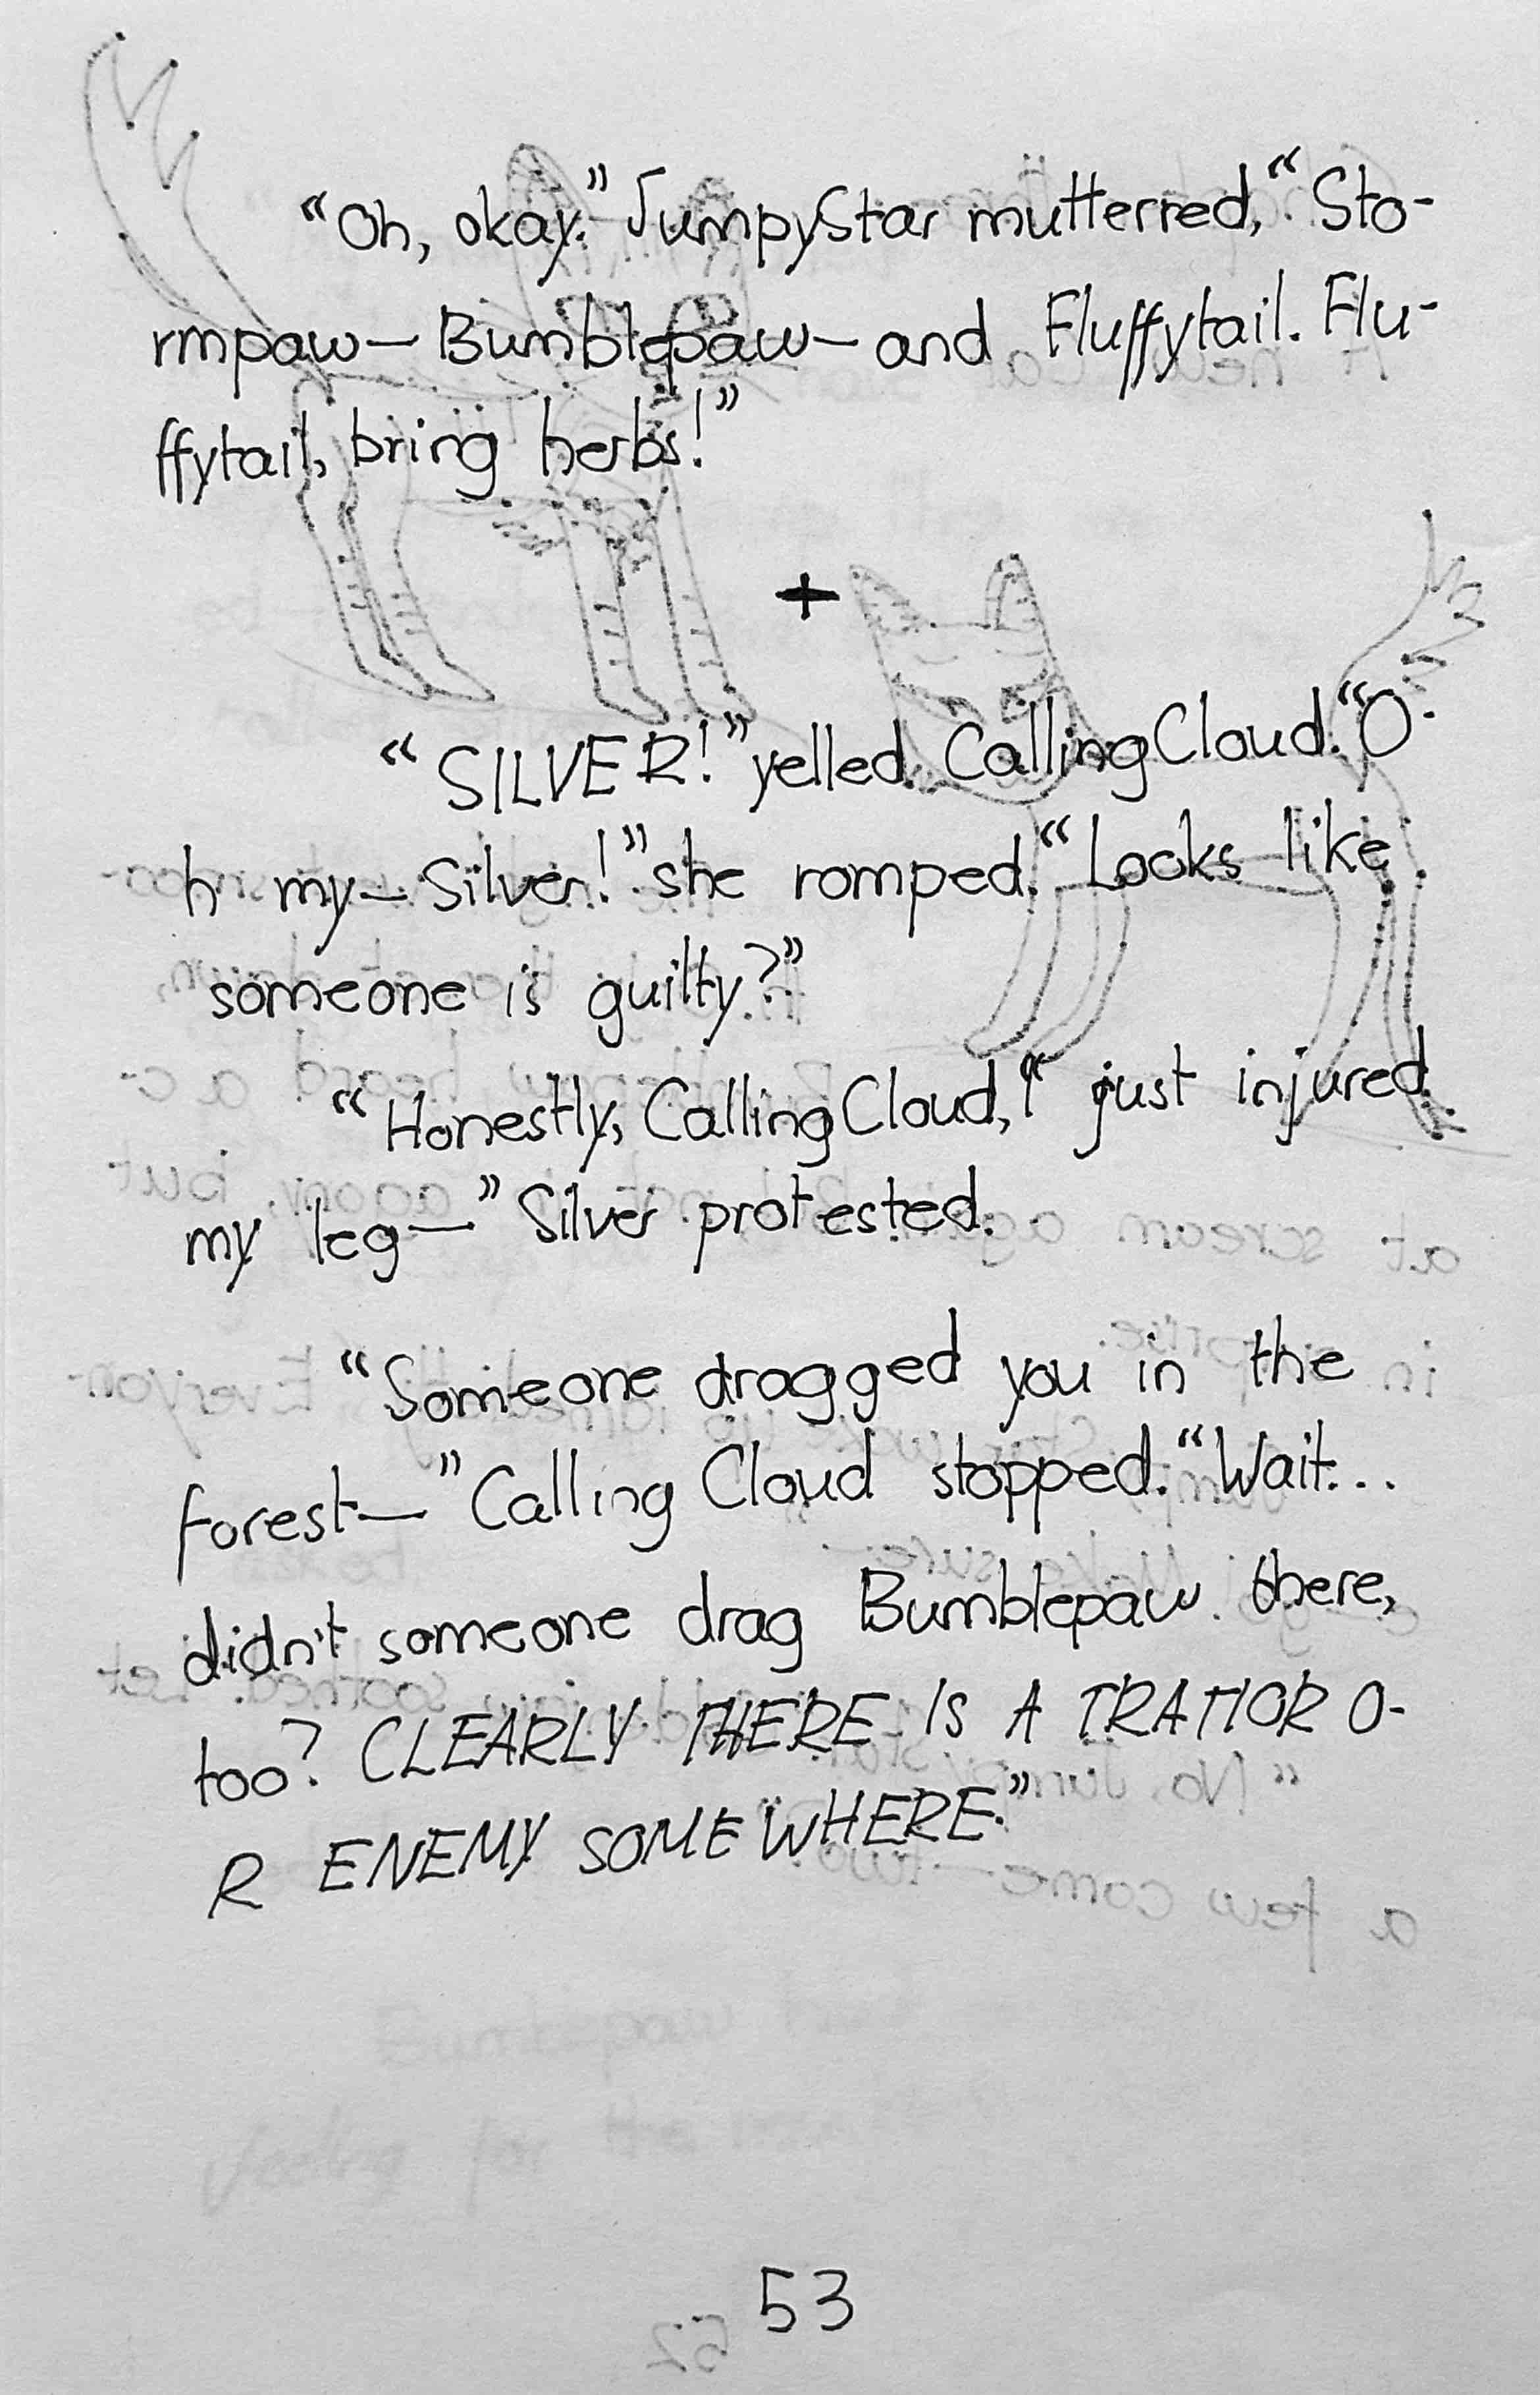 “Oh, okay.” JumpyStar mutterred, “Sto-
rmpaw—Bumblepaw—and Fluffytail. Flu-
ffytail, bring herbs!”
+
“SILVER!” yelled CallingCloud. “O-
h my—Silver!” she romped. “Looks like
someone is guilty?”
“Honestly, CallingCloud, I just injured
my leg—” Silver protested.
“Someone dragged you in the
forest—” Calling Cloud stopped. “Wait...
didn't someone drag Bumblepaw there,
too? CLEARLY THERE IS A TRATIOR O-
R ENEMY SOMEWHERE.”
53